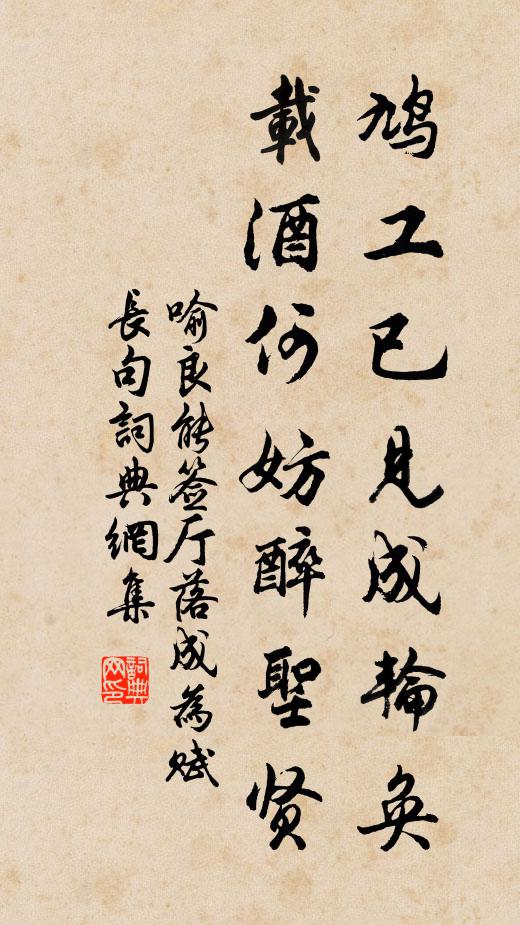 鳩工已見成輪奐
載酒何妨醉聖贤
喻良能签厅落成為赋
長句詞典網集
詞典网印